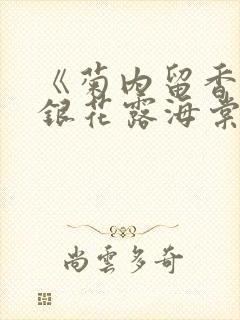 《菊内留香
銀花露海棠
尚雲多奇